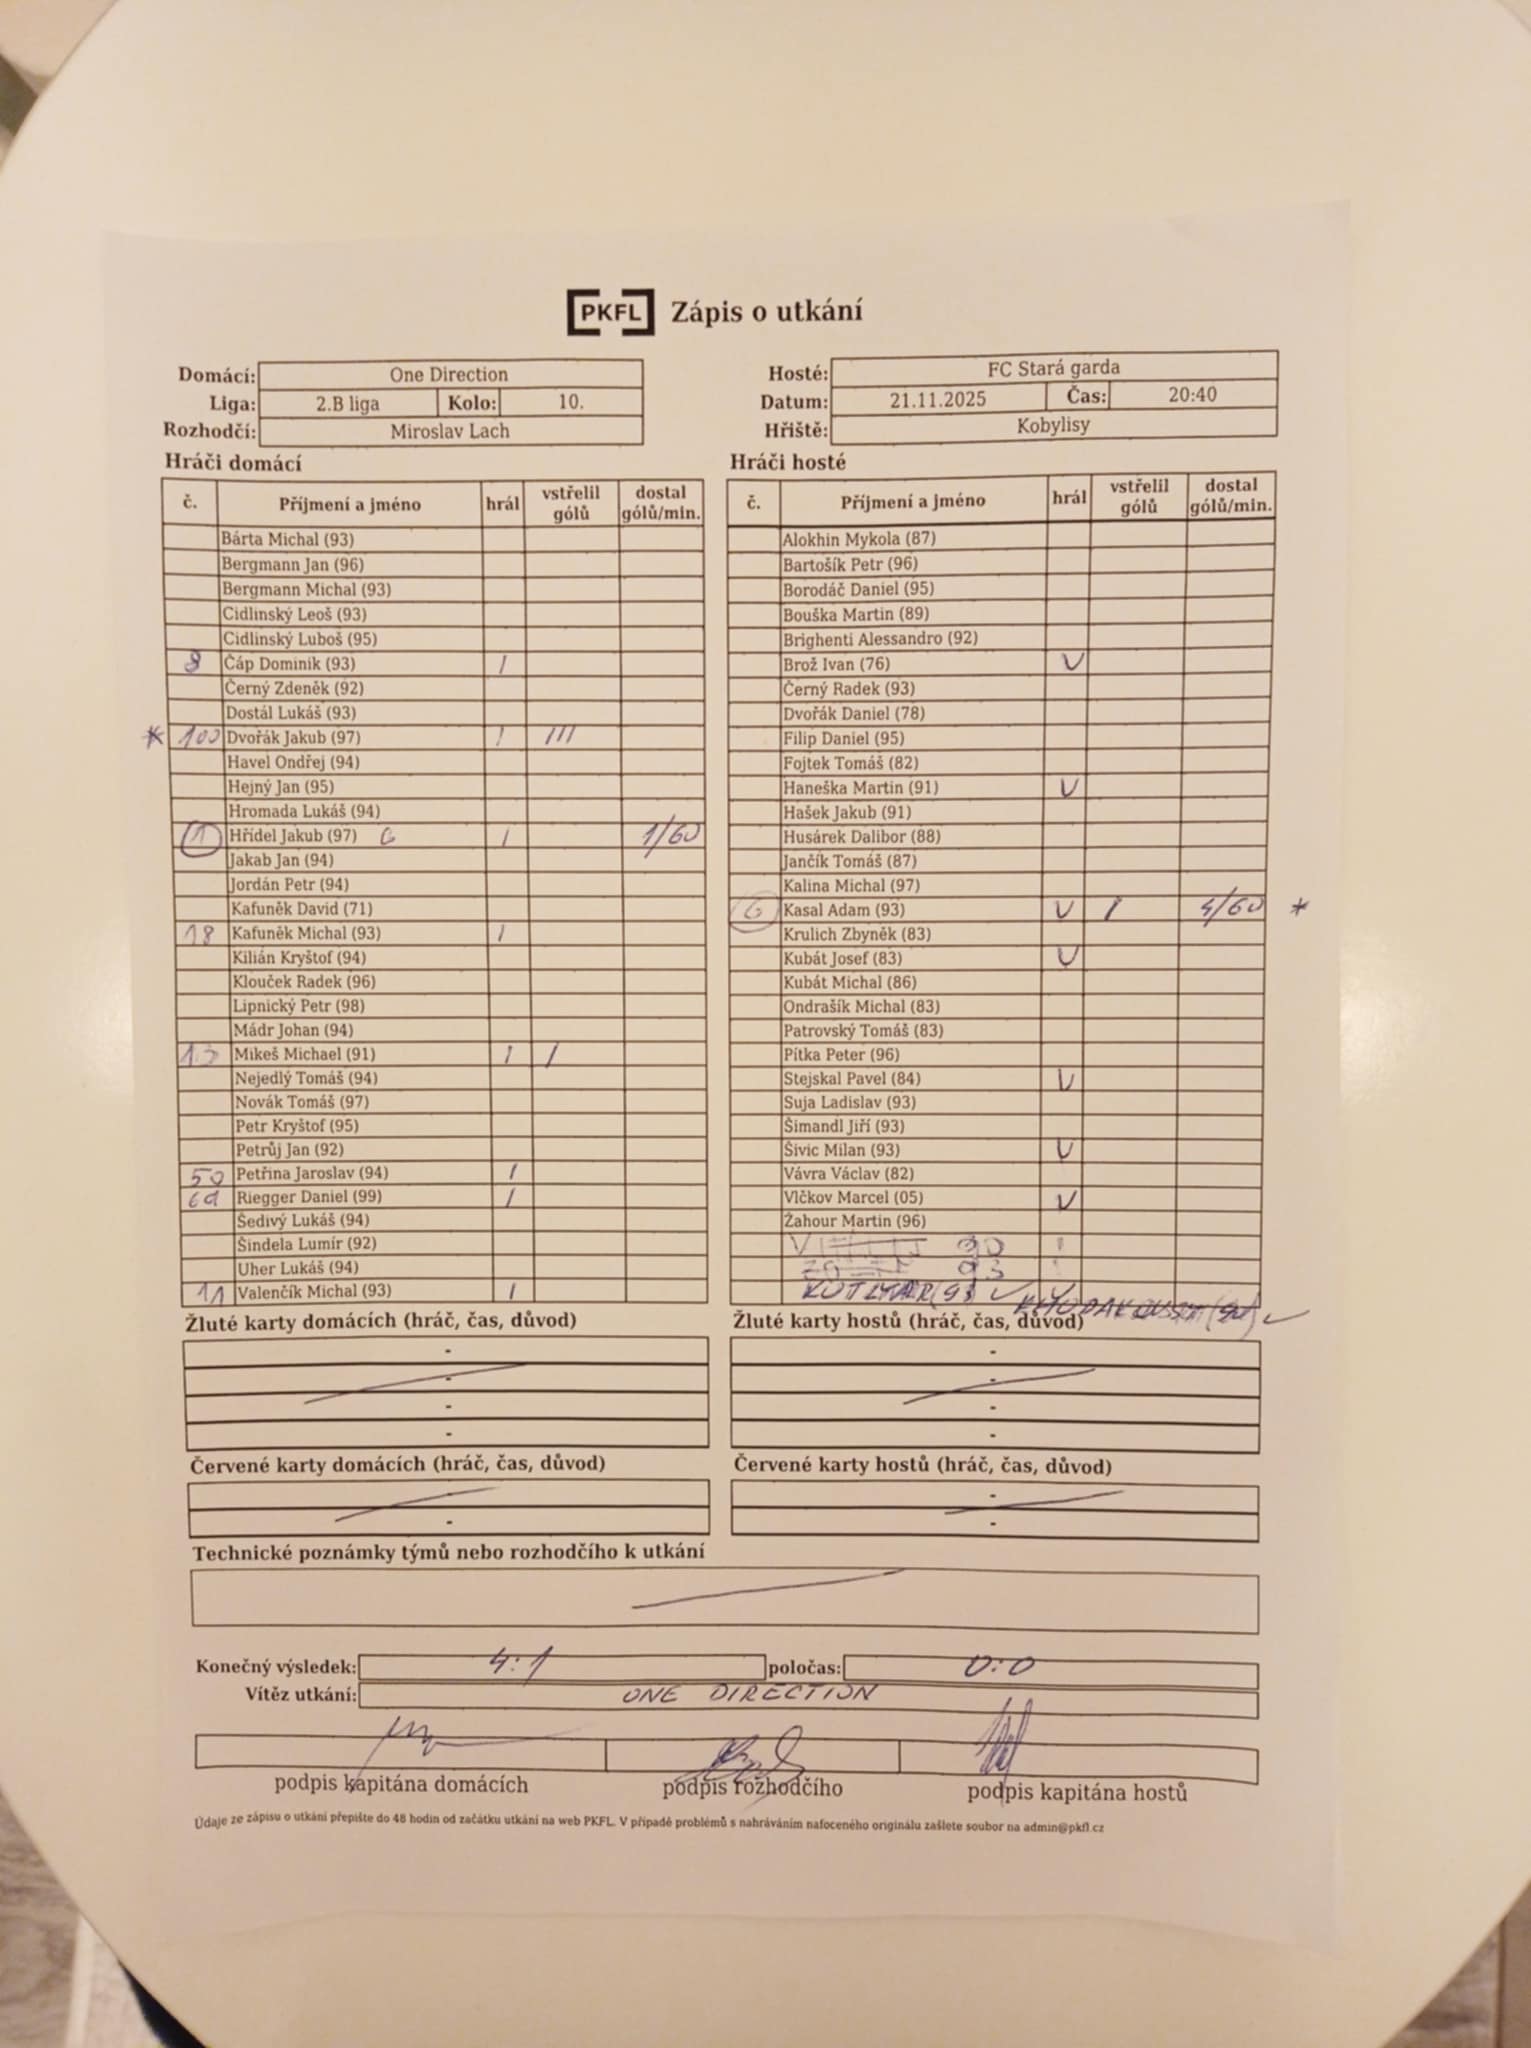 PKFL Zápis o utkání
Domácí: One Direction
Liga: 2.B liga Kolo: 10.
Rozhodčí: Miroslav Lach
Hosté: FC Stará garda
Datum: 21.11.2025 Čas: 20:40
Hřiště: Kobylisy
Hráči domácí
č. Příjmení a jméno hrál vstřelil gólů dostal gólů/min.
Bárta Michal (93)
Bergmann Jan (96)
Bergmann Michal (93)
Cidlinský Leoš (93)
Cidlinský Luboš (95)
8 Čáp Dominik (93) I
Černý Zdeněk (92)
Dostál Lukáš (93)
* 100 Dvořák Jakub (97) I III
Havel Ondřej (94)
Hejný Jan (95)
Hromada Lukáš (94)
1 Hřídel Jakub (97) G I 1/60
Jakab Jan (94)
Jordán Petr (94)
Kafuněk David (71)
18 Kafuněk Michal (93) I
Kilián Kryštof (94)
Klouček Radek (96)
Lipnický Petr (98)
Mádr Johan (94)
13 Mikeš Michael (91) I I
Nejedlý Tomáš (94)
Novák Tomáš (97)
Petr Kryštof (95)
Petrůj Jan (92)
50 Petřina Jaroslav (94) I
69 Riegger Daniel (99) I
Šedivý Lukáš (94)
Šindela Lumír (92)
Uher Lukáš (94)
11 Valenčík Michal (93) I
Hráči hosté
č. Příjmení a jméno hrál vstřelil gólů dostal gólů/min.
Alokhin Mykola (87)
Bartošík Petr (96)
Borodáč Daniel (95)
Bouška Martin (89)
Brighenti Alessandro (92)
Brož Ivan (76) V
Černý Radek (93)
Dvořák Daniel (78)
Filip Daniel (95)
Fojtek Tomáš (82)
Haneška Martin (91) V
Hašek Jakub (91)
Husárek Dalibor (88)
Jančík Tomáš (87)
Kalina Michal (97)
G Kasal Adam (93) V I 4/60 *
Krulich Zbyněk (83)
Kubát Josef (83) V
Kubát Michal (86)
Ondrašík Michal (83)
Patrovský Tomáš (83)
Pítka Peter (96)
Stejskal Pavel (84) V
Suja Ladislav (93)
Šimandl Jiří (93)
Šivic Milan (93) V
Vávra Václav (82)
Vlčkov Marcel (05) V
Žahour Martin (96)
90
93
Žluté karty domácích (hráč, čas, důvod)
-
-
-
-
Žluté karty hostů (hráč, čas, důvod)
-
-
-
-
Červené karty domácích (hráč, čas, důvod)
-
-
Červené karty hostů (hráč, čas, důvod)
-
-
Technické poznámky týmů nebo rozhodčího k utkání
Konečný výsledek: 4:1 poločas: 0:0
Vítěz utkání: ONE DIRECTION
podpis kapitána domácích podpis rozhodčího podpis kapitána hostů
Údaje ze zápisu o utkání přepište do 48 hodin od začátku utkání na web PKFL. V případě problémů s nahráváním nafoceného originálu zašlete soubor na admin@pkfl.cz